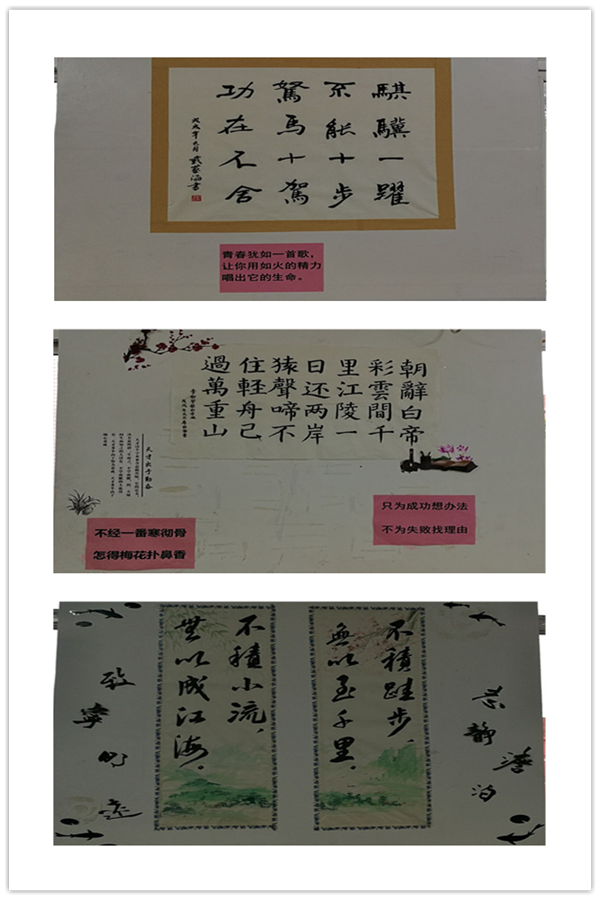 騏驥一躍
不能十步
駑馬十駕
功在不舍
青春犹如一首歌，
让你用如火的精力
唱出它的生命。
朝辭白帝
彩雲間千
里江陵一
日还两岸
猿聲啼不
住軽舟已
過萬重山
天才出于勤奋
只为成功想办法
不为失败找理由
不经一番寒彻骨
怎得梅花扑鼻香
志靜澹泊
不積跬步，
無以至千里。
不積小流，
無以成江海。
致寧明遠